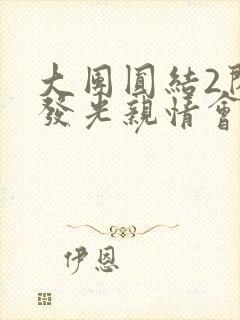 大團圓結2
發光親情會
伊恩